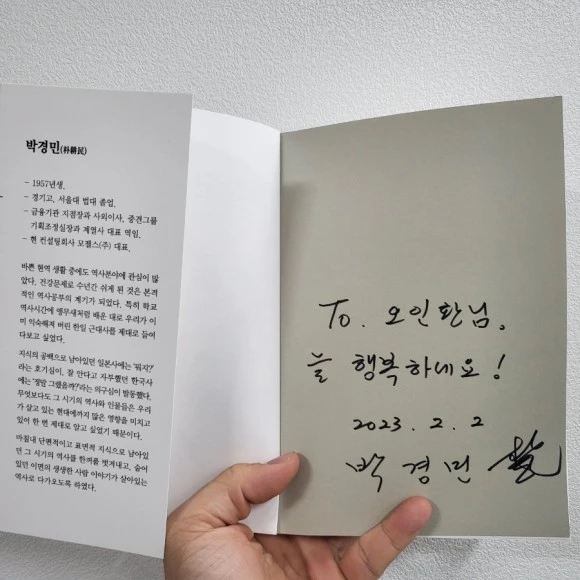 박경민(朴耕民)
- 1957년생.
- 경기고, 서울대 법대 졸업.
- 금융기관 지점장과 사외이사, 중견그룹
기획조정실장과 계열사 대표 역임.
- 현 컨설팅회사 모젤스(주) 대표.
바쁜 현역 생활 중에도 역사분야에 관심이 많
았다. 건강문제로 수년간 쉬게 된 것은 본격
적인 역사공부의 계기가 되었다. 특히 학교
역사시간에 앵무새처럼 배운 대로 우리가 이
미 익숙해져 버린 한일 근대사를 제대로 들여
다보고 싶었다.
지식의 공백으로 남아있던 일본사에는 '뭐지?'
라는 호기심이, 잘 안다고 자부했던 한국사
에는 '정말 그랬을까?'라는 의구심이 발동했다.
무엇보다도 그 시기의 역사와 인물들은 우리
가 살고 있는 현대에까지 많은 영향을 미치고
있어 한 번 제대로 알고 싶었기 때문이다.
마침내 단편적이고 표면적 지식으로 남아있
던 그 시기의 역사를 한꺼풀 벗겨내고, 숨어
있던 이면의 생생한 사람 이야기가 살아있는
역사로 다가오도록 하였다.
To. 오인환님.
늘 행복하네요!
2023. 2. 2
박경민